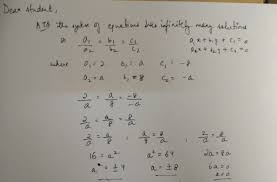 Dear student,
ATQ the system of equations has infinitely many solutions
so a₁/a₂ = b₁/b₂ = c₁/c₂ a₁x + b₁y + c₁ = 0
a₂x + b₂y + c₂ = 0
where a₁ = 2 b₁ = a c₁ = -8
a₂ = a b₂ = 8 c₂ = -a
2/a = a/8 = -8/-a
2/a = a/8 = 8/a
2/a = a/8 ; a/8 = 8/a ; 2/a = 8/a
16 = a² a² = 64 2a = 8a
a = ±4 a = ±8 6a = 0
a = 0